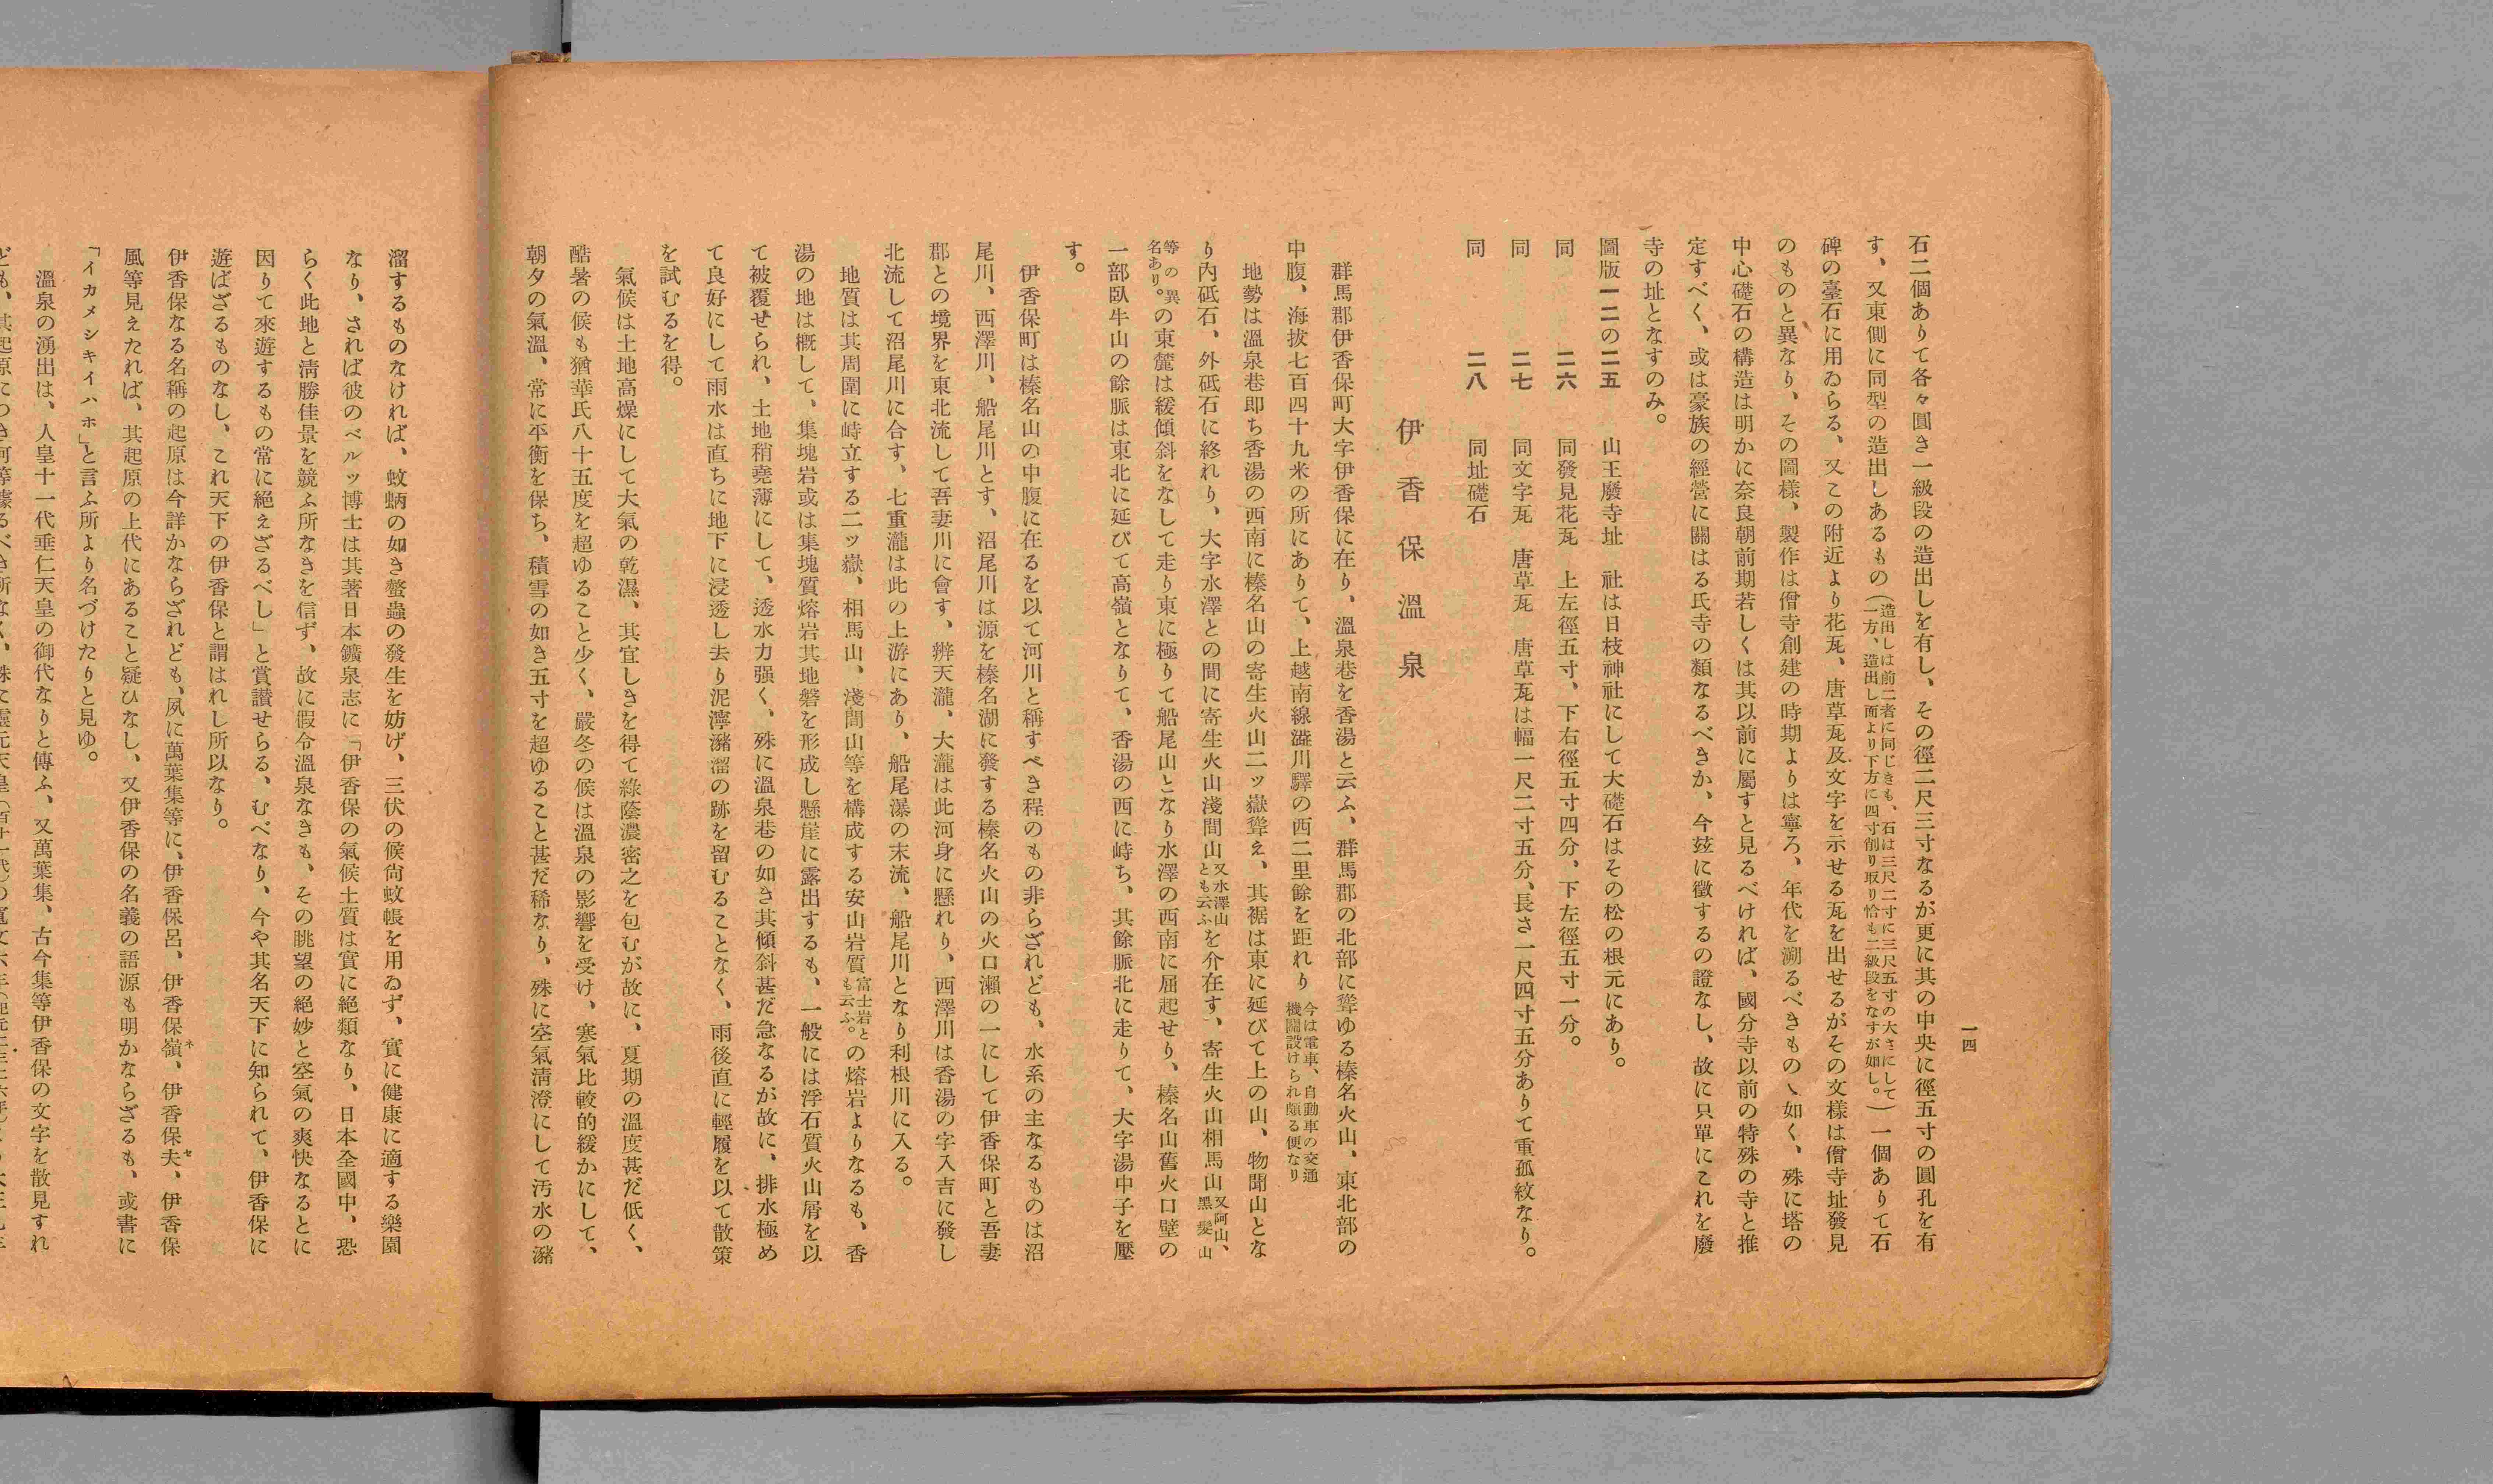 一四
石二個ありて各々圓き一級段の造出しを有し、その徑二尺三寸なるが更に其の中央に徑五寸の圓孔を有
す、又東側に同型の造出しあるもの（造出しは前二者に同じきも、石は三尺二寸に三尺五寸の大さにして一方、造出し面より下方に四寸削り取り恰も二級段をなすが如し。）一個ありて石
碑の臺石に用ゐらる、又この附近より花瓦、唐草瓦及文字を示せる瓦を出せるがその文様は僧寺址發見
のものと異なり、その圖様、製作は僧寺創建の時期よりは寧ろ、年代を溯るべきものゝ如く、殊に塔の
中心礎石の構造は明かに奈良朝前期若しくは其以前に屬すと見るべければ、國分寺以前の特殊の寺と推
定すべく、或は豪族の經營に關はる氏寺の類なるべきか、今玆に徵するの證なし、故に只單にこれを廢
寺の址となすのみ。
圖版一二の二五　山王廢寺址　社は日枝神社にして大礎石はその松の根元にあり。
同　二六　同發見花瓦　上左徑五寸、下右徑五寸四分、下左徑五寸一分。
同　二七　同文字瓦　唐草瓦　唐草瓦は幅一尺二寸五分、長さ一尺四寸五分ありて重孤紋なり。
同　二八　同址礎石
伊香保溫泉
群馬郡伊香保町大字伊香保に在り、溫泉巷を香湯と云ふ、群馬郡の北部に聳ゆる榛名火山、東北部の
中腹、海抜七百四十九米の所にありて、上越南線澁川驛の西二里餘を距れり今は電車、自動車の交通機關設けられ頗る便なり
地勢は溫泉巷即ち香湯の西南に榛名山の寄生火山二ッ嶽聳え、其裾は東に延びて上の山、物聞山とな
り內砥石、外砥石に終れり、大字水澤との間に寄生火山淺間山又水澤山とも云ふを介在す、寄生火山相馬山又阿山、黑髮山
等の異名あり。の東麓は緩傾斜をなして走り東に極りて船尾山となり水澤の西南に屈起せり、榛名山舊火口壁の
一部臥牛山の餘脈は東北に延びて高嶺となりて、香湯の西に峙ち、其餘脈北に走りて、大字湯中子を壓
す。
伊香保町は榛名山の中腹に在るを以て河川と稱すべき程のもの非らざれども、水系の主なるものは沼
尾川、西澤川、船尾川とす、沼尾川は源を榛名湖に發する榛名火山の火口瀨の一にして伊香保町と吾妻
郡との境界を東北流して吾妻川に會す、辨天瀧、大瀧は此河身に懸れり、西澤川は香湯の字入吉に發し
北流して沼尾川に合す、七重瀧は此の上游にあり、船尾瀑の末流、船尾川となり利根川に入る。
地質は其周圍に峙立する二ッ嶽、相馬山、淺間山等を構成する安山岩質富士岩とも云ふ。の熔岩よりなるも、香
湯の地は概して、集塊岩或は集塊質熔岩其地磐を形成し懸崖に露出するも、一般には浮石質火山屑を以
て被覆せられ、土地稍堯薄にして、透水力强く、殊に溫泉巷の如き其傾斜甚だ急なるが故に、排水極め
て良好にして雨水は直ちに地下に浸透し去り泥濘瀦溜の跡を留むることなく、雨後直に輕履を以て散策
を試むるを得。
氣候は土地高燥にして大氣の乾濕、其宜しきを得て綠蔭濃密之を包むが故に、夏期の溫度甚だ低く、
酷暑の候も猶華氏八十五度を超ゆること少く、嚴冬の候は溫泉の影響を受け、寒氣比較的緩かにして、
朝夕の氣溫、常に平衡を保ち、積雪の如き五寸を超ゆること甚だ稀なり、殊に空氣淸澄にして汚水の瀦
溜するものなければ、蚊蚋の如き螫蟲の發生を妨げ、三伏の候尙蚊帳を用ゐず、實に健康に適する樂園
なり、されば彼のベルッ博士は其著日本鑛泉志に「伊香保の氣候土質は實に絕類なり、日本全國中、恐
らく此地と淸勝佳景を競ふ所なきを信ず、故に假令溫泉なきも、その眺望の絕妙と空氣の爽快なるとに
因りて來遊するもの常に絕えざるべし」と賞讃せらる、むべなり、今や其名天下に知られて、伊香保に
遊ばざるものなし、これ天下の伊香保と謂はれし所以なり。
伊香保なる名稱の起原は今詳かならざれども、夙に萬葉集等に、伊香保呂、伊香保嶺ネ、伊香保夫セ、伊香保
風等見えたれば、其起原の上代にあること疑ひなし、又伊香保の名義の語源も明かならざるも、或書に
「イカメシキイハホ」と言ふ所より名づけたりと見ゆ。
溫泉の湧出は、人皇十一代垂仁天皇の御代なりと傳ふ、又萬葉集、古今集等伊香保の文字を散見すれ